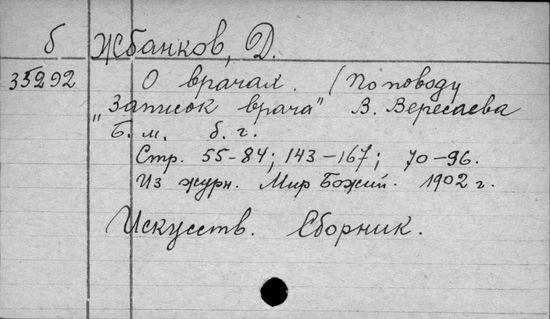 б Жбанков, Д.
35292 О врачах. (По поводу
„Записок врача" В. Вересаева
Б. м. б. г.
Стр. 55-84; 143-167; 70-96.
Из журн. Мир Божий. 1902 г.
Искусств. Сборник.